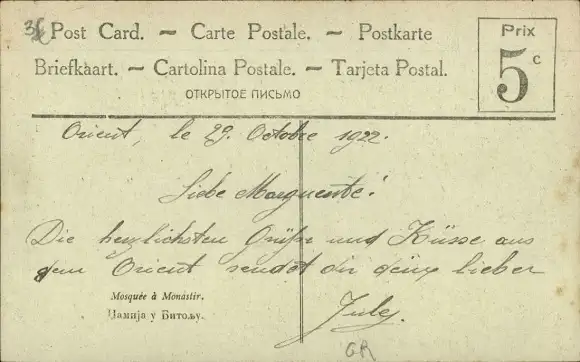 36 Post Card. – Carte Postale. – Postkarte
Briefkaart. – Cartolina Postale. – Tarjeta Postal.
ОТКРЫТОЕ ПИСЬМО
Prix
5 c
Orient, le 29. Octobre 1922.
Liebe Marguerite!
Die herzlichsten Grüße und Küsse aus
dem Orient sendet dir dein lieber
July.
Mosquée à Monastir.
Џамија у Битољу.
GR